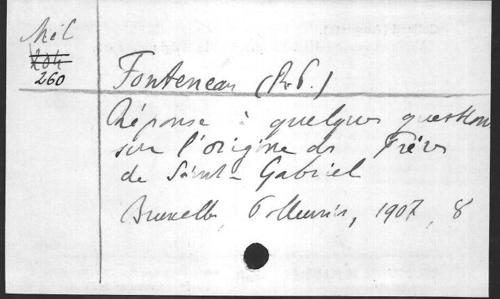 Mél
204
260
Fonteneau (R.P.)
Réponse à quelques questions
sur l'origine des Frères
de Saint-Gabriel
Bruxelles, 1907, 8